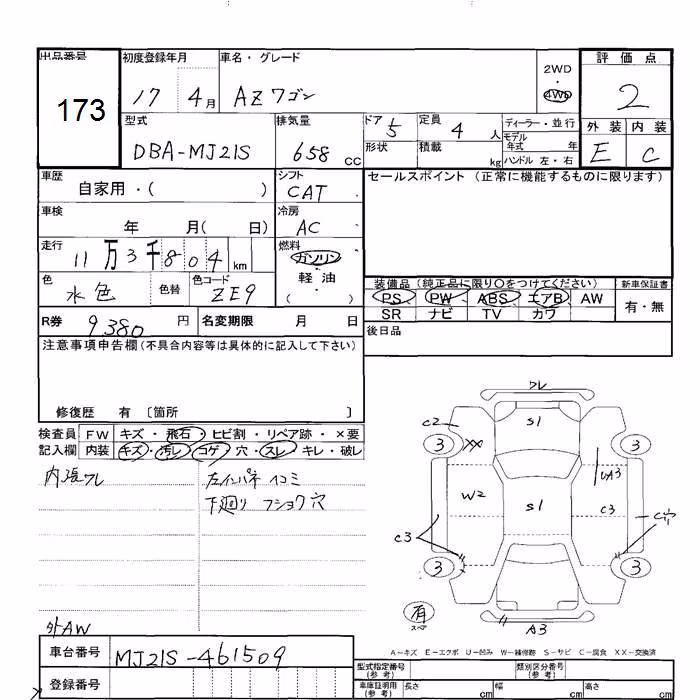 出品番号 初度登録年月 車名・グレード 評価点
173 17 4月 AZワゴン 2WD・4WD 2
型式 排気量 ドア 5 定員 4人 ディーラー・並行 外装 内装
DBA-MJ21S 658 CC 形状 積載 kg モデル年式 年 E C
ハンドル 左・右
車歴 シフト セールスポイント (正常に機能するものに限ります)
自家用・( ) CAT
車検 年 月( 日) 冷房 AC
走行 11万3千804km 燃料 ガソリン
色 水色 色替 色コード ZE9 軽油 ( )
装備品 (純正品に限り○をつけてください) 新車保証書
PS PW ABS エアB AW 有・無
SR ナビ TV カワ
R券 9380 円 名変期限 月 日 後日品
注意事項申告欄(不具合内容等は具体的に記入して下さい)
修復歴 有 〔箇所 〕
検査員 FW キズ・飛石・ヒビ割・リペア跡・×要
記入欄 内装 キズ・汚レ・コゲ・穴・スレ・キレ・破レ
内張ワレ 左インパネ イコミ
下廻り フショク穴
ワレ
C2 S1
3 XX 3
UA3
W2 S1 C3 C穴
C3
3 3
有
スペア
A3
外AW
A-キズ E-エクボ U-凹み W-補修跡 S-サビ C-腐食 XX-交換済
車台番号 MJ21S-461509
型式指定番号(参考) 類別区分番号(参考)
登録番号
車庫証明用(参考) 長さ cm 幅 cm 高さ cm